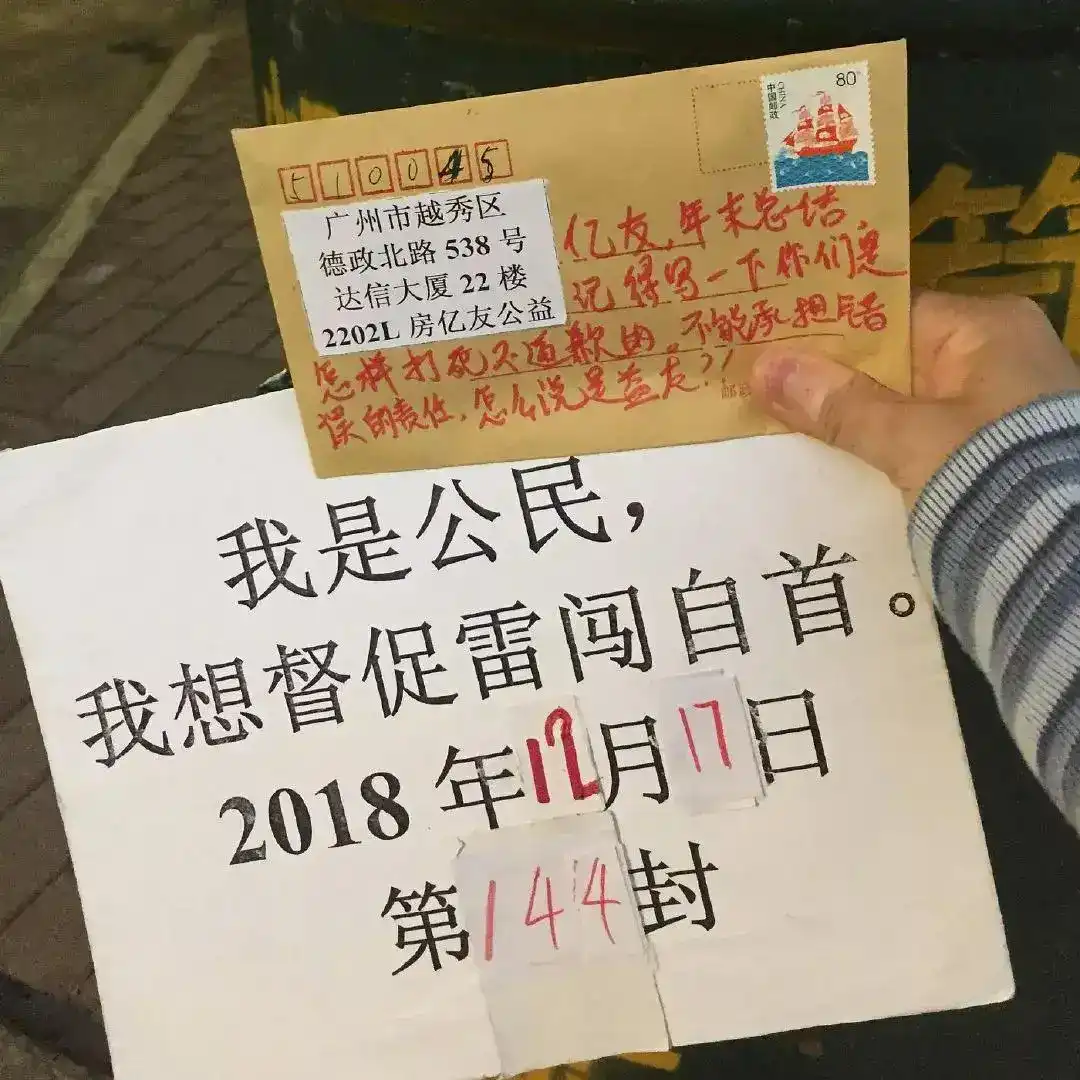 80
中国邮政
CHINA
510045
广州市越秀区
德政北路 538 号
达信大厦 22 楼
2202L 房亿友公益
亿友,年末总结,
记得写一下你们是
怎样打死不道歉的。不能承担错
误的责任,怎么说是益友?!
我是公民,
我想督促雷闯自首。
2018 年12月17日
第144封